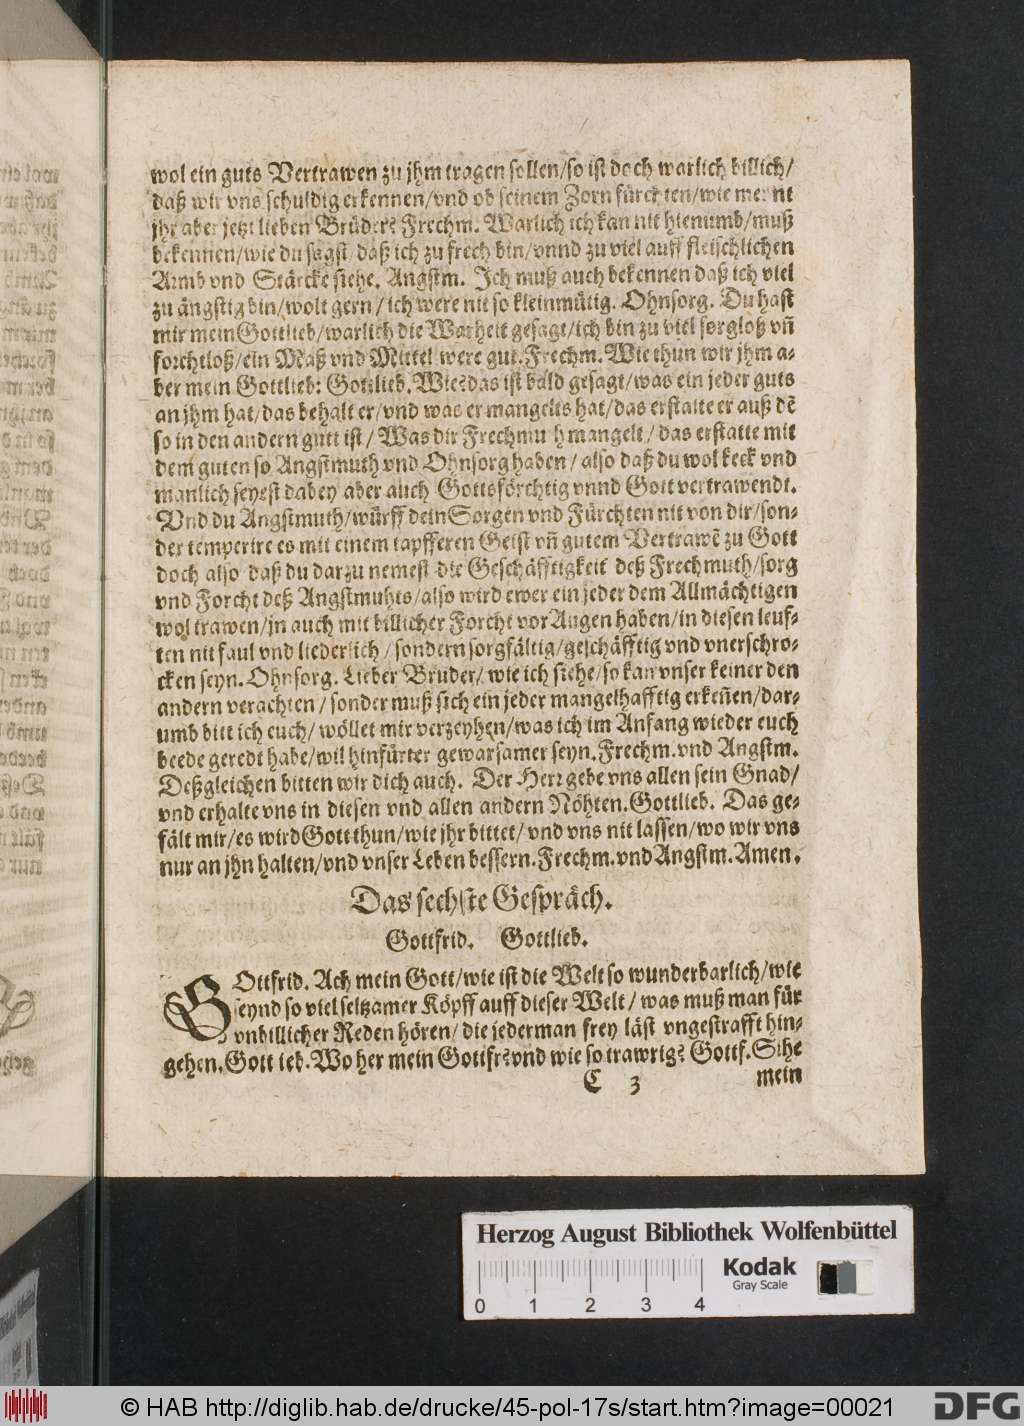 wol ein guts Vertrawen zu jhm tragen sollen/so ist doch warlich billich/
daß wir vns schuldig erkennen/vnd ob seinem Zorn fürchten/wie meint
jhr aber jetzt lieben Brüder? Frechm. Warlich ich kan nit hienumb/muß
bekennen/wie du sagst/daß ich zu frech bin/vnnd zu viel auff fleischlichen
Armb vnd Stärcke siehe. Angstm. Ich muß auch bekennen daß ich viel
zu ängstig bin/wolt gern/ich were nit so kleinmütig. Ohnsorg. Du hast
mir mein Gottlieb/warlich die Warheit gesagt/ich bin zu viel sorgloß vñ
forchtloß/ein Maß vnd Mittel were gut. Frechm. Wie thun wir jhm a-
ber mein Gottlieb: Gottlieb. Wie? das ist bald gesagt/was ein jeder guts
an jhm hat/das behalt er/vnd was er mangelts hat/das erstatte er auß dẽ
so in den andern gutt ist/Was dir Frechmuth mangelt/das erstatte mit
dem guten so Angstmuth vnd Ohnsorg haben/also daß du wol keck vnd
manlich seyest dabey aber auch Gottsförchtig vnnd Gott vertrawendt.
Vnd du Angstmuth/würff dein Sorgen vnd Fürchten nit von dir/son-
der temperire es mit einem tapfferen Geist vñ gutem Vertrawẽ zu Gott
doch also daß du darzu nemest die Geschäfftigkeit deß Frechmuth/sorg
vnd Forcht deß Angstmuhts/also wird ewer ein jeder dem Allmächtigen
wol trawen/jn auch mit billicher Forcht vor Augen haben/in diesen leuf-
ten nit faul vnd liederlich/sondern sorgfältig/geschäfftig vnd vnerschro-
cken seyn. Ohnsorg. Lieber Bruder/wie ich siehe/so kan vnser keiner den
andern verachten/sonder muß sich ein jeder mangelhafftig erkeñen/dar-
umb bitt ich euch/wöllet mir verzeyhen/was ich im Anfang wieder euch
beede geredt habe/wil hinfürter gewarsamer seyn. Frechm. vnd Angstm.
Deßgleichen bitten wir dich auch. Der Herr gebe vns allen sein Gnad/
vnd erhalte vns in diesen vnd allen andern Nöhten. Gottlieb. Das ge-
fält mir/es wird Gott thun/wie jhr bittet/vnd vns nit lassen/wo wir vns
nur an jhn halten/vnd vnser Leben bessern. Frechm. vnd Angstm. Amen.
Das sechste Gespräch.
Gottfrid. Gottlieb.
GOttfrid. Ach mein Gott/wie ist die Welt so wunderbarlich/wie
seynd so viel seltzamer Köpff auff dieser Welt/was muß man für
vnbillicher Reden hören/die jederman frey läst vngestrafft hin-
gehen. Gottlieb. Woher mein Gottfr? vnd wie so trawrig? Gottf. Sihe
C 3 mein
Herzog August Bibliothek Wolfenbüttel
Kodak
Gray Scale
0 1 2 3 4
© HAB http://diglib.hab.de/drucke/45-pol-17s/start.htm?image=00021
DFG